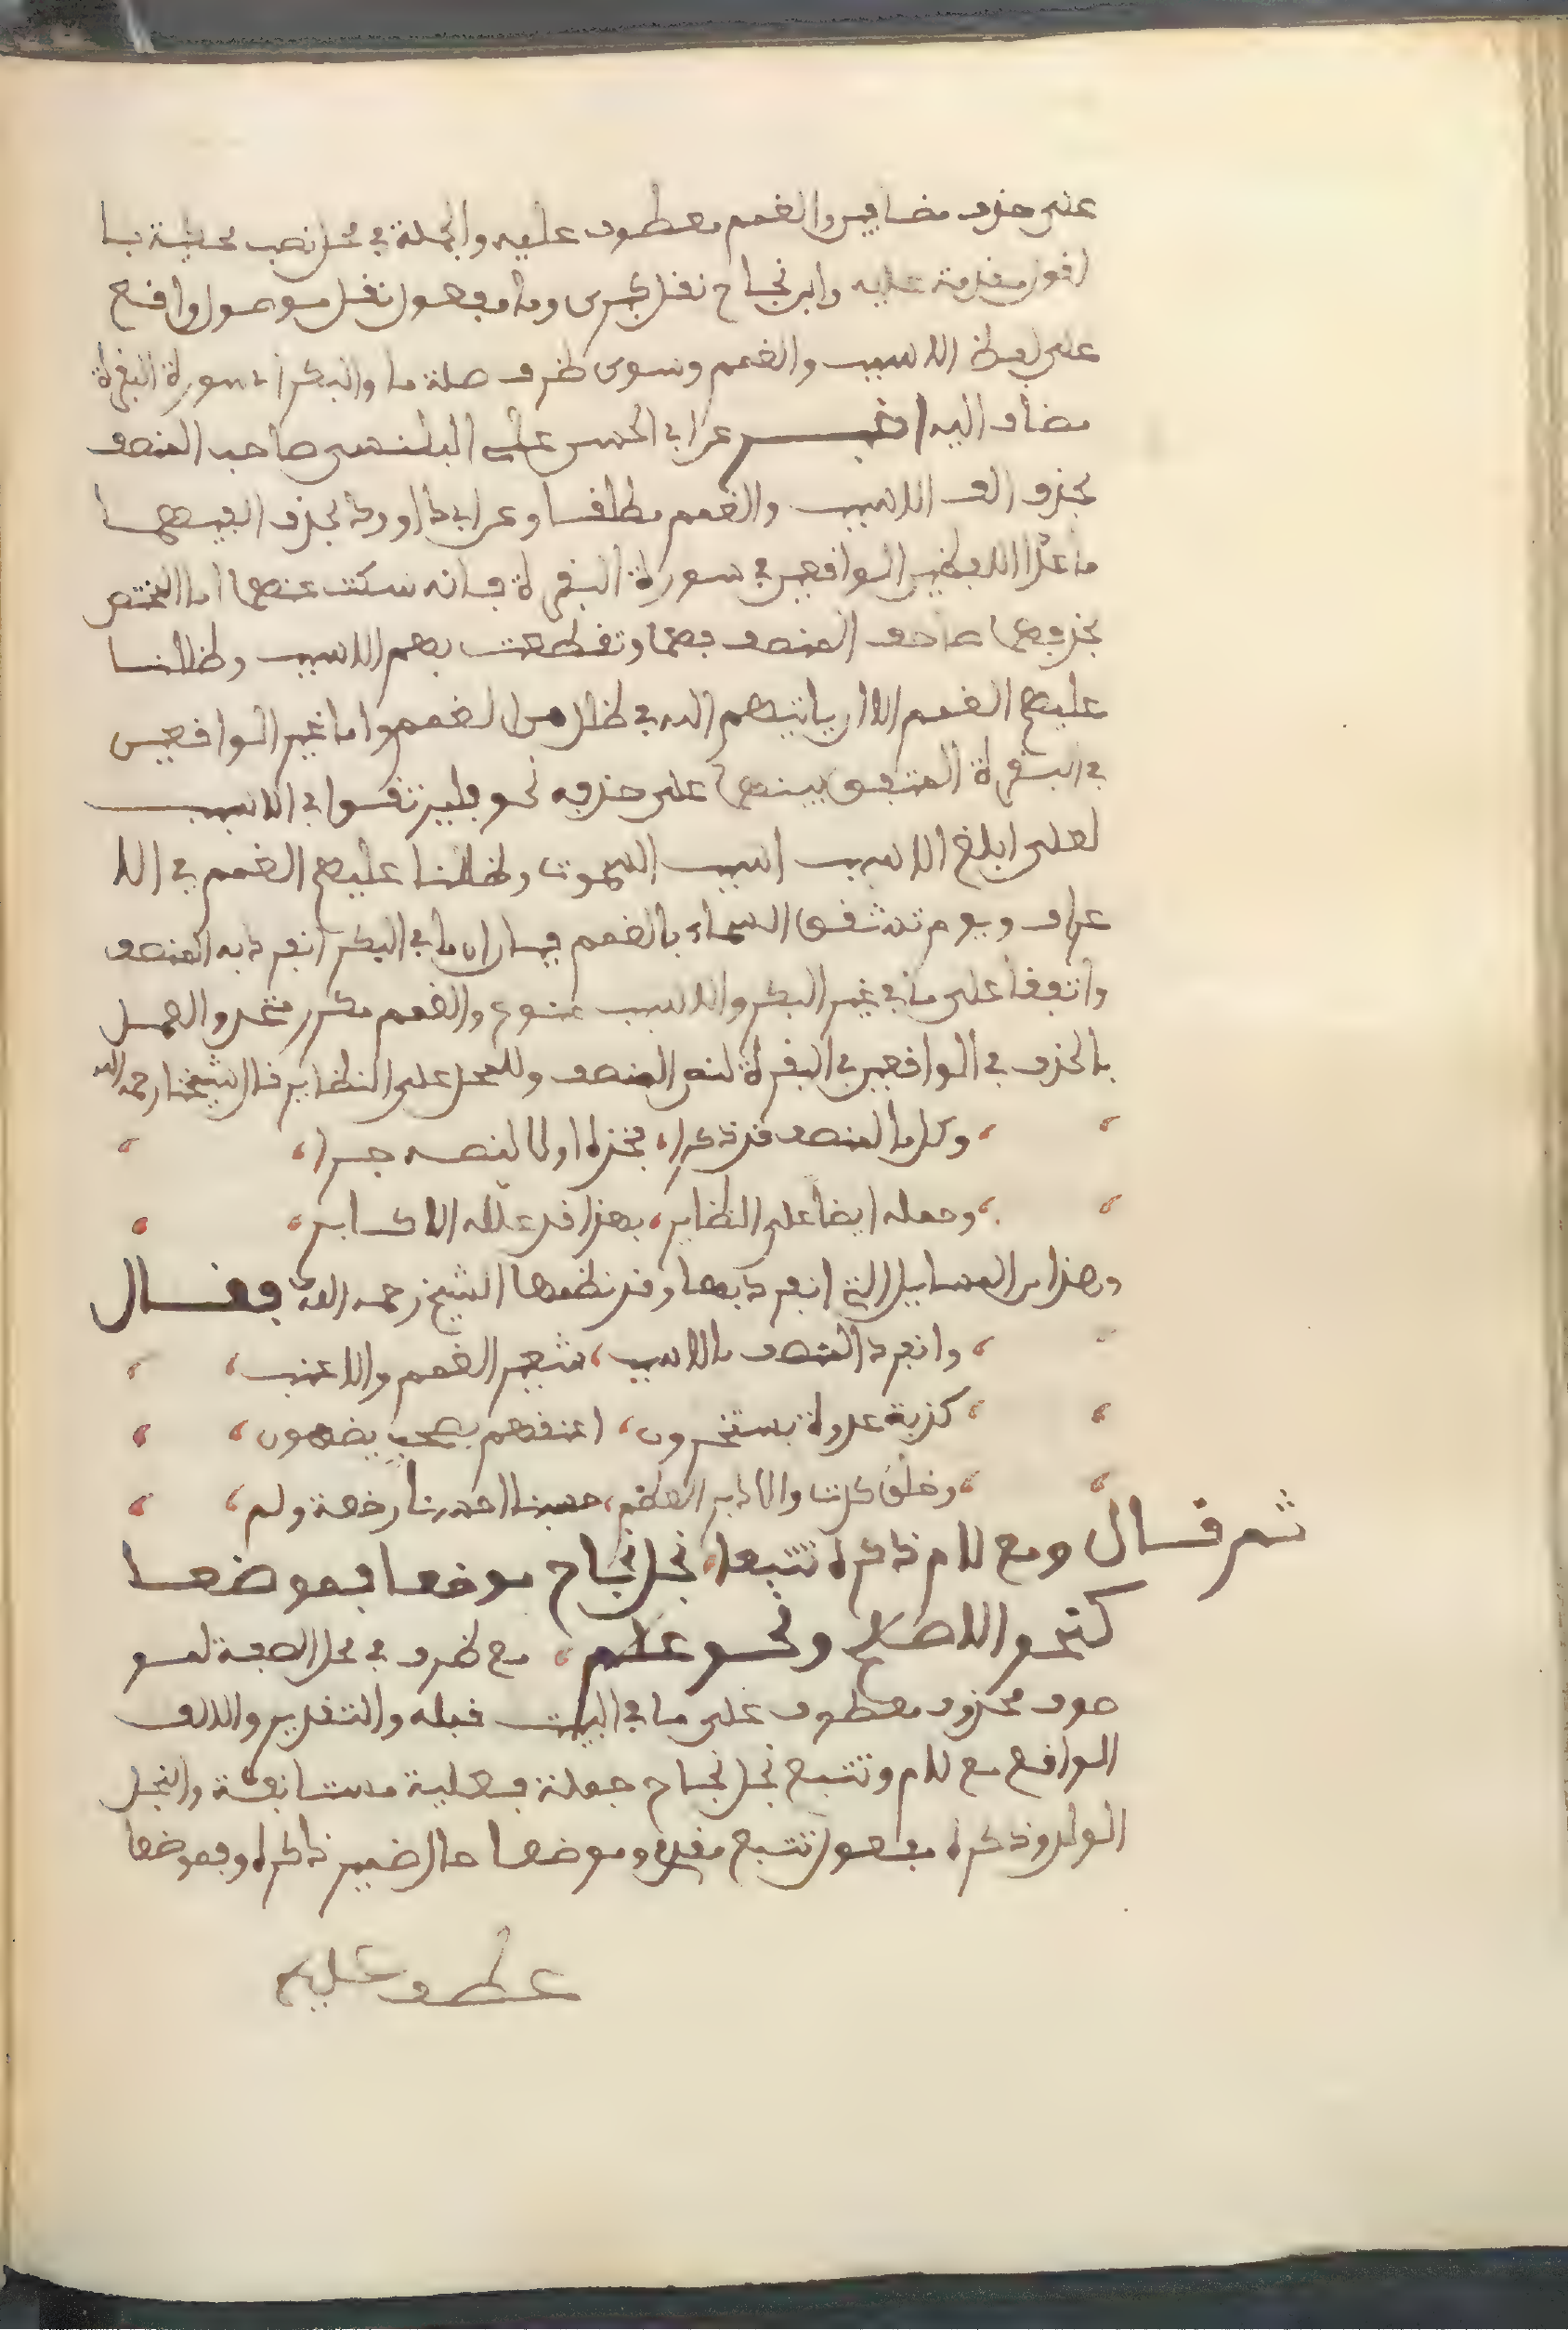 على حذف مضافين والغمم معطوف عليه والجملة في محل نصب محكية با
لقول مقدمة عليه وابن نجاح نقل كبرى وما مفعول نقل موصول واقع
على لفظ الاسبب والغمم وسوى ظرف صلة ما والبكر اي سورة البقرة
مضاف اليه اخبر عن ابي الحسن علي البلنسي صاحب المنصف
بحذف الف الاسبب والغمم مطلقا وعن ابي داوود بحذف الفيهما
ما عدا اللفظين الواقعين في سورة البقرة فانه سكت عنهما اما المختص
بحذفهما صاحب المنصف فهما وتقطعت بهم الاسبب وظللنا
عليهم الغمم الا ان ياتيهم الله في ظلل من الغمم واما غير الواقعين
في البقرة المتفق بينهما على حذفه نحو فليرتقوا في الاسبب
لعلي ابلغ الاسبب اسبب السموت وظللنا عليهم الغمم في الا
عراف ويوم تشقق السماء بالغمم فبان ان ما في البكر انفرد به المنصف
واتفقا على ما في غير البكر والاسبب متنوع والغمم مكرر متحد والعمل
بالحذف في الواقعين في البقرة لنص المنصف وللحمل على النظاير قال شيخنا رحمه الله
وكل ما المنصف قد ذكرا، فخذه اولا لنصه جرا،
وحمله ايضا على النظاير، بهذا قد علله الاكابر،
وهذا من المسايل التي انفرد بها وقد نظمها الشيخ رحمه الله فقال
وانفرد المنصف بالاسبب، شعير الغمم والاعنب،
كذبة عدوة يستخرون، اعنقهم يصحب يضهون،
وخلق كلت والادبر العظم، حسبنا احدرنا رضعة ولم،
ثم قال ومع لام ذكره تتبعا، نجل نجاح موضعا فموضعا
كنحو الاصلح ونحو علم، مع ظرف في محل الصفة لمو
صوف محذوف معطوف على ما في البيت قبله والتقدير والالف
الواقع مع لام وتتبع نجل نجاح جملة فعلية مستانفة والنجل
الولد وذكره مفعول تتبع مقدم وموضعا حال ضمير ذكره وفموضعا
عطف عليه